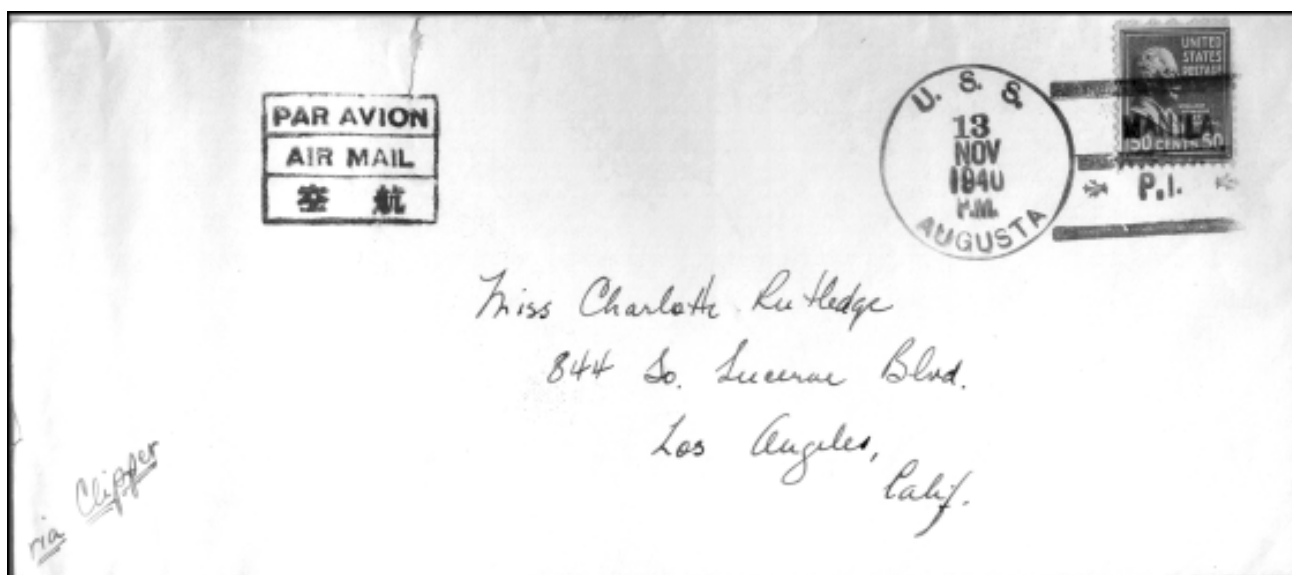 PAR AVION
AIR MAIL
空 航
U. S. S.
13
NOV
1940
P.M.
AUGUSTA
UNITED
STATES
POSTAGE
MANILA
50 CENTS 50
P.I.
Miss Charlotte Rutledge
844 So. Lucerne Blvd.
Los Angeles,
Calif.
via Clipper